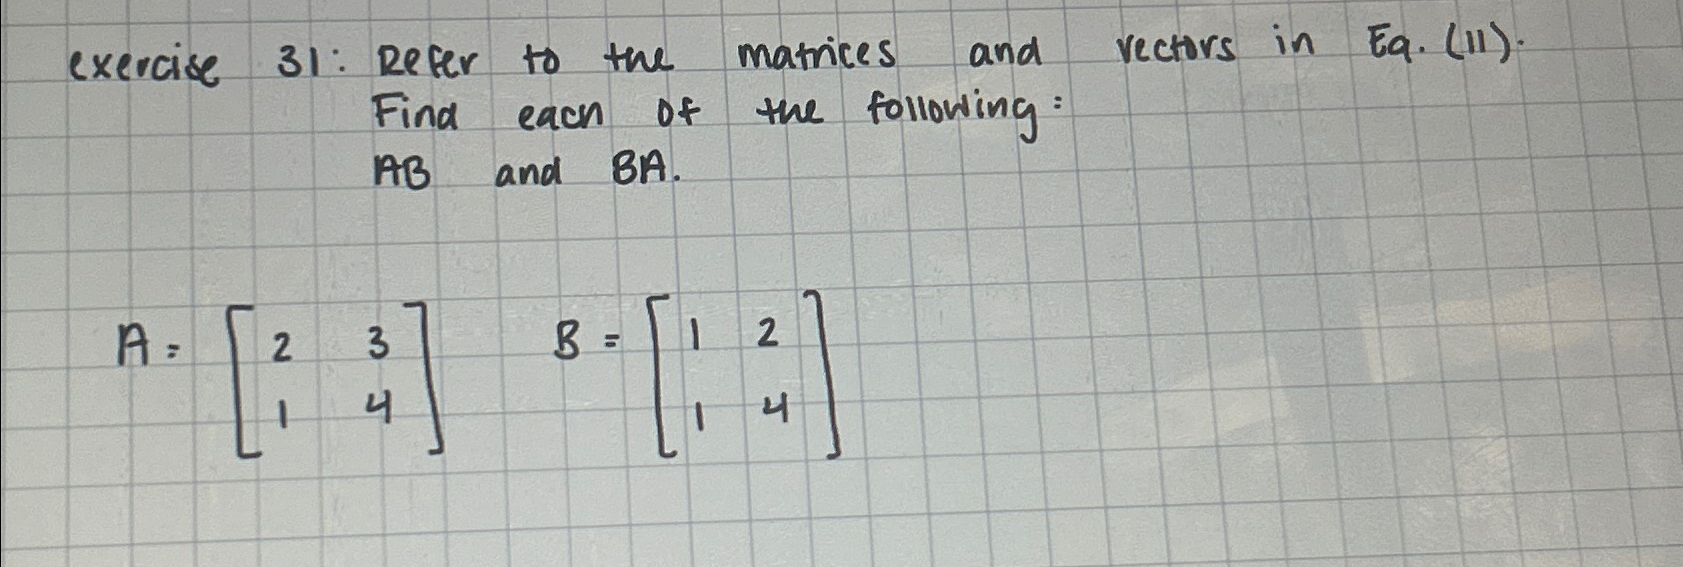 exercise 31: Refer to the matrices and vectors in Eq. (11).
Find each of the following:
AB and BA.
A = [ 2 3 B = [ 1 2 ]
1 4 ] 1 4 ]